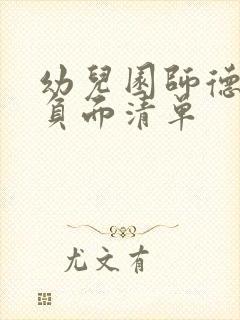 幼兒園師德
負面清單
尤文有